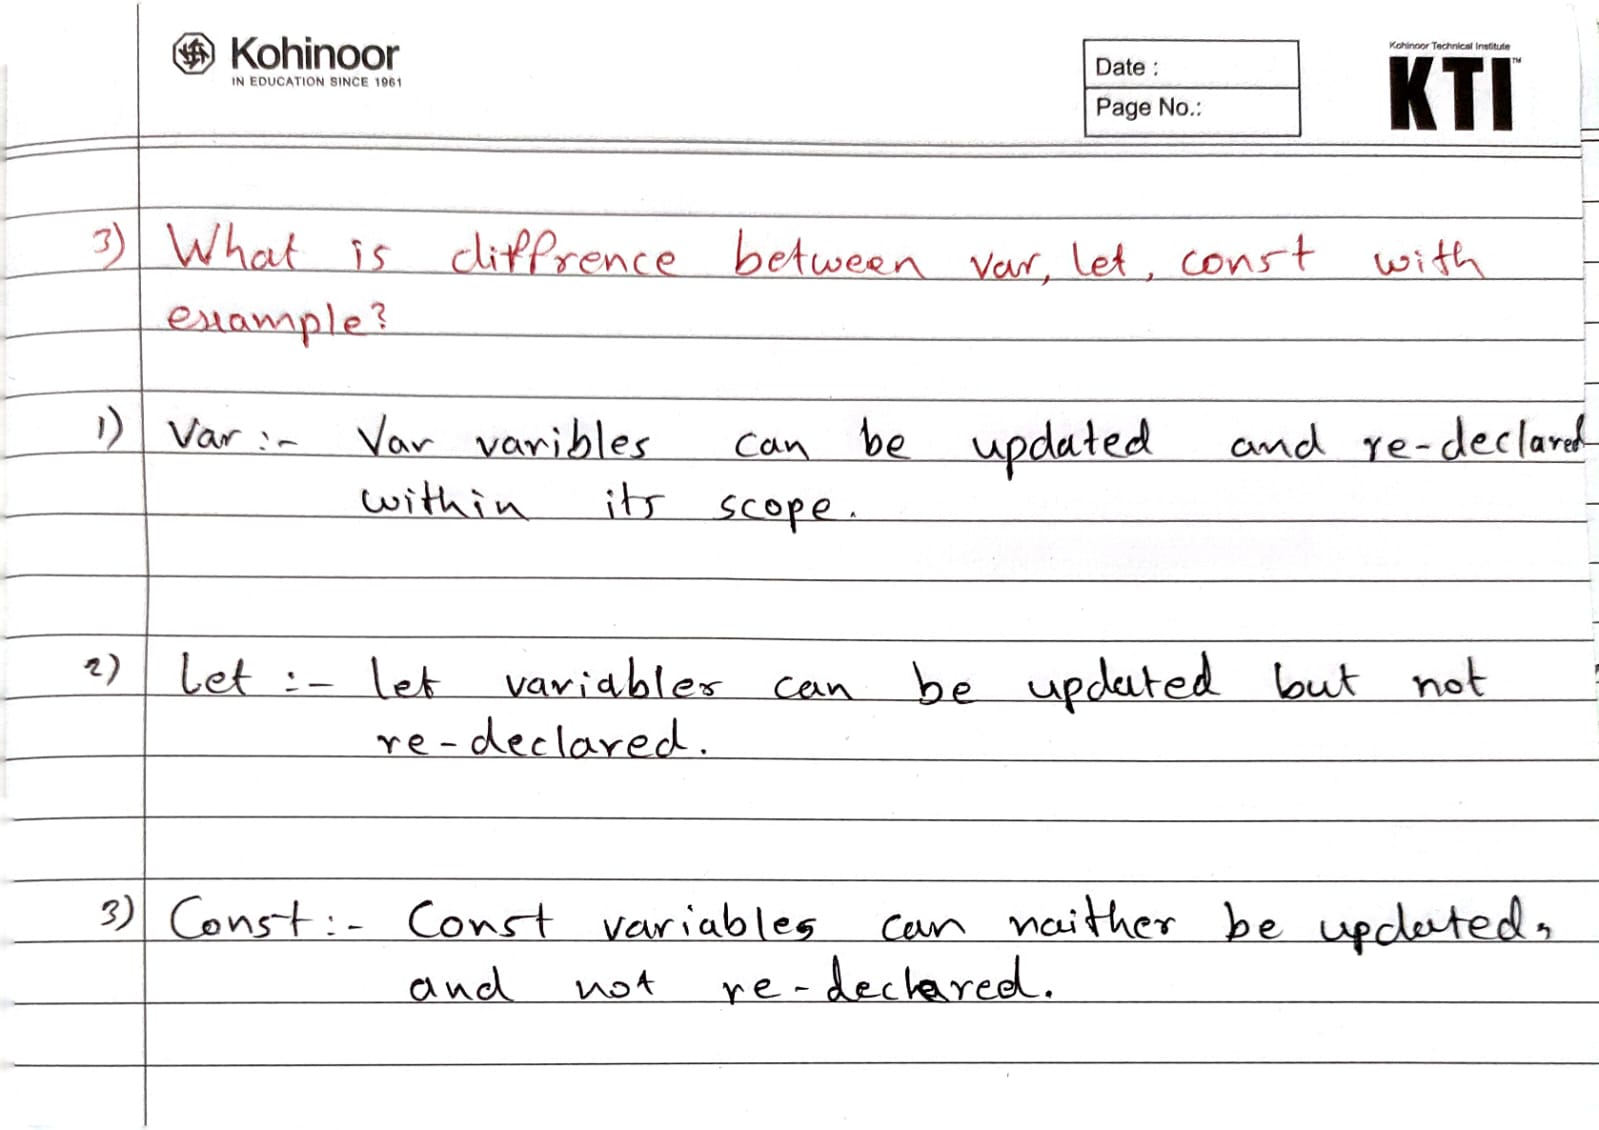 Kohinoor
IN EDUCATION SINCE 1961
Date :
Page No.:
Kohinoor Technical Institute
KTI™
3) What is diffrence between var, let, const with
example?
1) Var :- Var varibles can be updated and re-declared
within its scope.
2) Let :- let variables can be updated but not
re-declared.
3) Const :- Const variables can naither be updated,
and not re-declared.